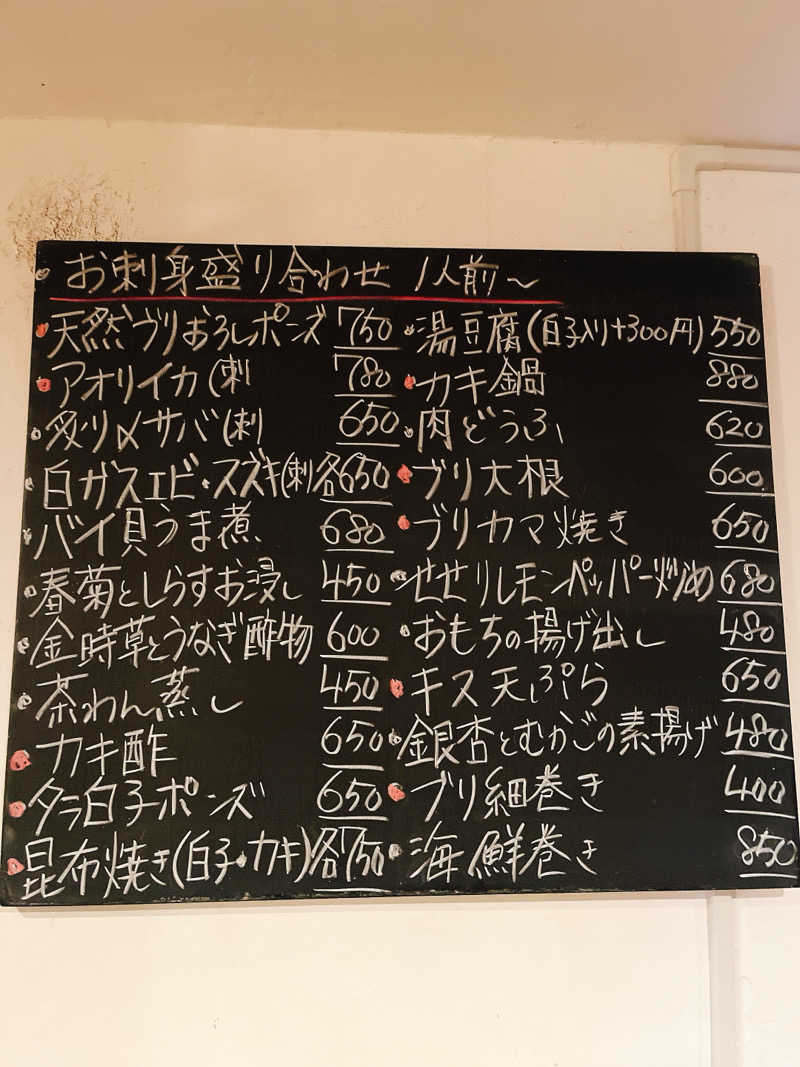 お刺身盛り合わせ 1人前〜
天然ブリおろしポンズ 750
アオリイカ(刺 780
炙り〆サバ(刺 650
白ガスエビ・スズキ(刺 各650
バイ貝うま煮 680
春菊としらすお浸し 450
金時草とうなぎ酢物 600
茶わん蒸し 450
カキ酢 650
タラ白子ポンズ 650
昆布焼き(白子・カキ) 各750
湯豆腐(白子入り+300円) 550
カキ鍋 880
肉どうふ 620
ブリ大根 600
ブリカマ焼き 650
せせりレモンペッパー炒め 680
おもちの揚げ出し 480
キス天ぷら 650
銀杏とむかごの素揚げ 480
ブリ細巻き 400
海鮮巻き 850